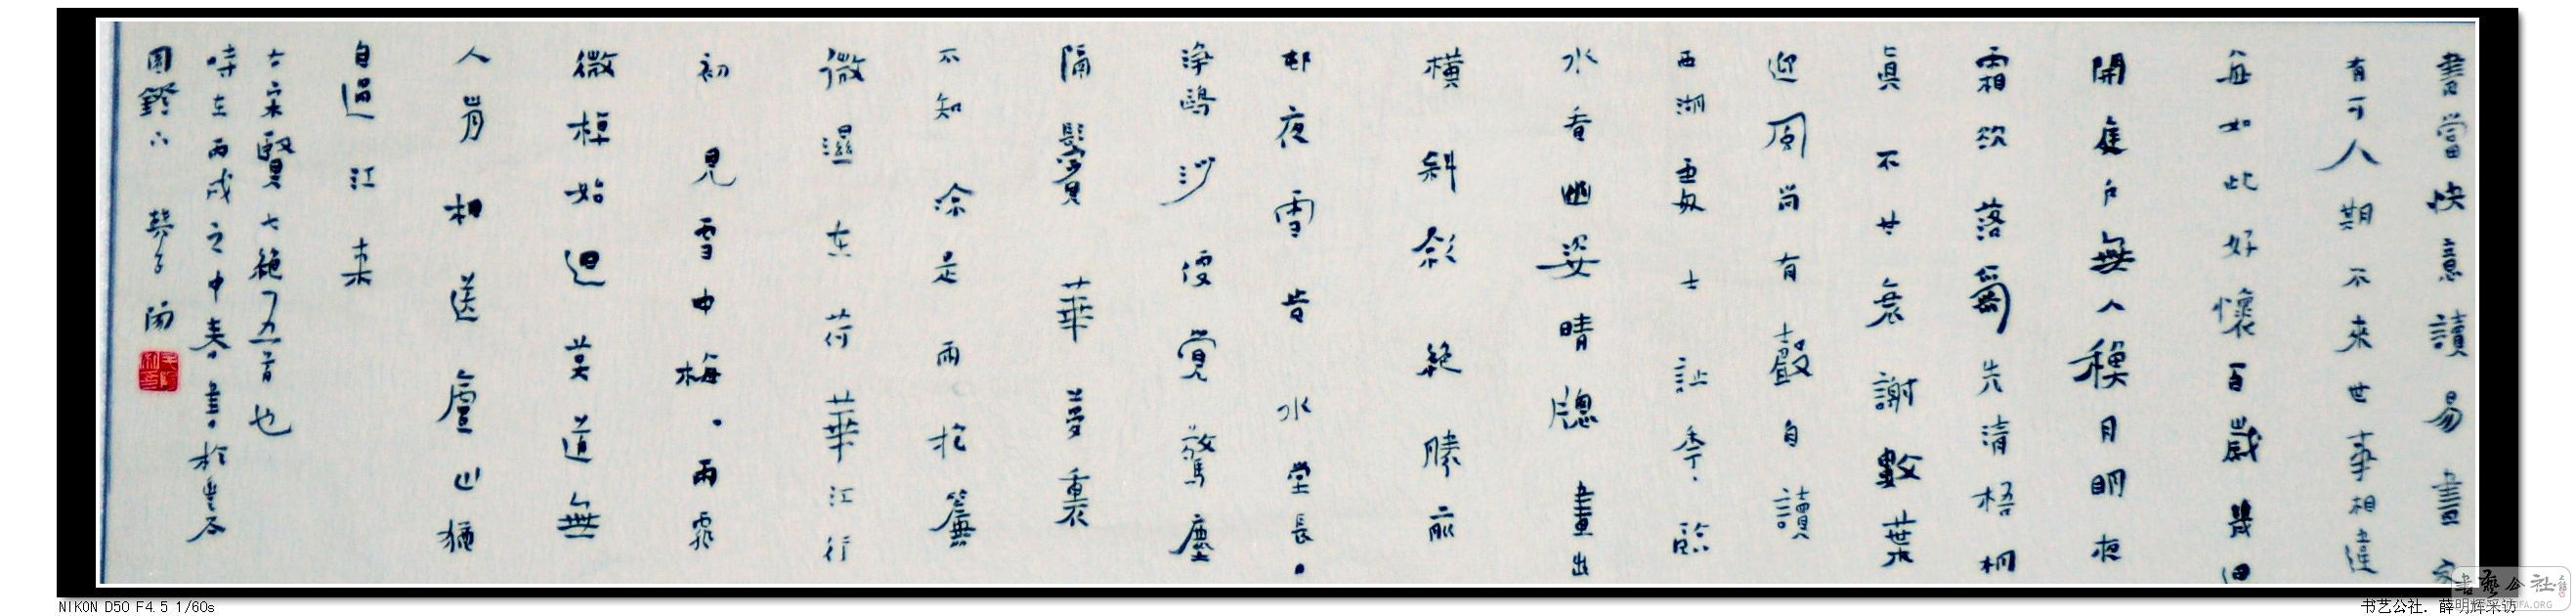 書當快意讀易盡客
有可人期不來世事相違
每如此好懷百歲幾回
開庭戶無人穐月明夜
霜欲落氣先清梧桐
眞不甘衰謝數葉
迎風尚有聲自讀
西湖處士詩年、臨
水看幽姿晴窗畫出
橫斜影絕勝前
邨夜雪時水堂長日
淨鷗沙便覺驚塵
隔鬢華夢裏
不知涼是雨捲簾
微濕在荷華江行
初見雪中梅、雨霏
微棹始迴莫道無
人肯相送廬山猶
自過江來
右宋賢七絕五首也
時在丙戌之中春書於
園鐙下
NIKON D50 F4.5 1/60s
书艺公社. 薛明辉采访